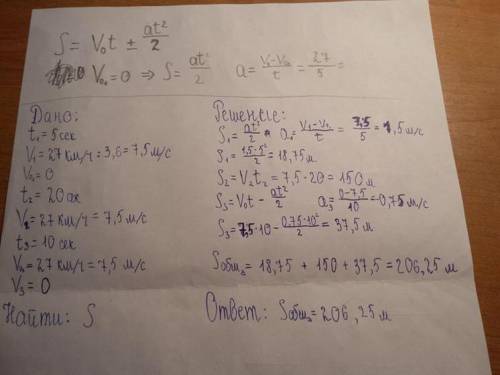 S = V₀t ± at²/2
V₀₁ = 0 ⇒ S = at²/2   a = V₁-V₀₁/t = 27/5 =
Дано:
t₁ = 5 сек
V₁ = 27 км/ч = 3,6 = 7,5 м/с
V₀₁ = 0
t₂ = 20 сек
V₂ = 27 км/ч = 7,5 м/с
t₃ = 10 сек
V₀₃ = 27 км/ч = 7,5 м/с
V₃ = 0
Найти: S
Решение:
S₁ = at²/2   a₁ = V₁-V₀₁/t = 7,5/5 = 1,5 м/с
S₁ = 1,5·5²/2 = 18,75 м
S₂ = V₂t₂ = 7,5 · 20 = 150 м
S₃ = V₀t - at²/2   a₃ = 0-7,5/10 = -0,75 м/с
S₃ = 7,5·10 - 0,75·10²/2 = 37,5 м
Sобщ = 18,75 + 150 + 37,5 = 206,25 м
Ответ: Sобщ = 206,25 м